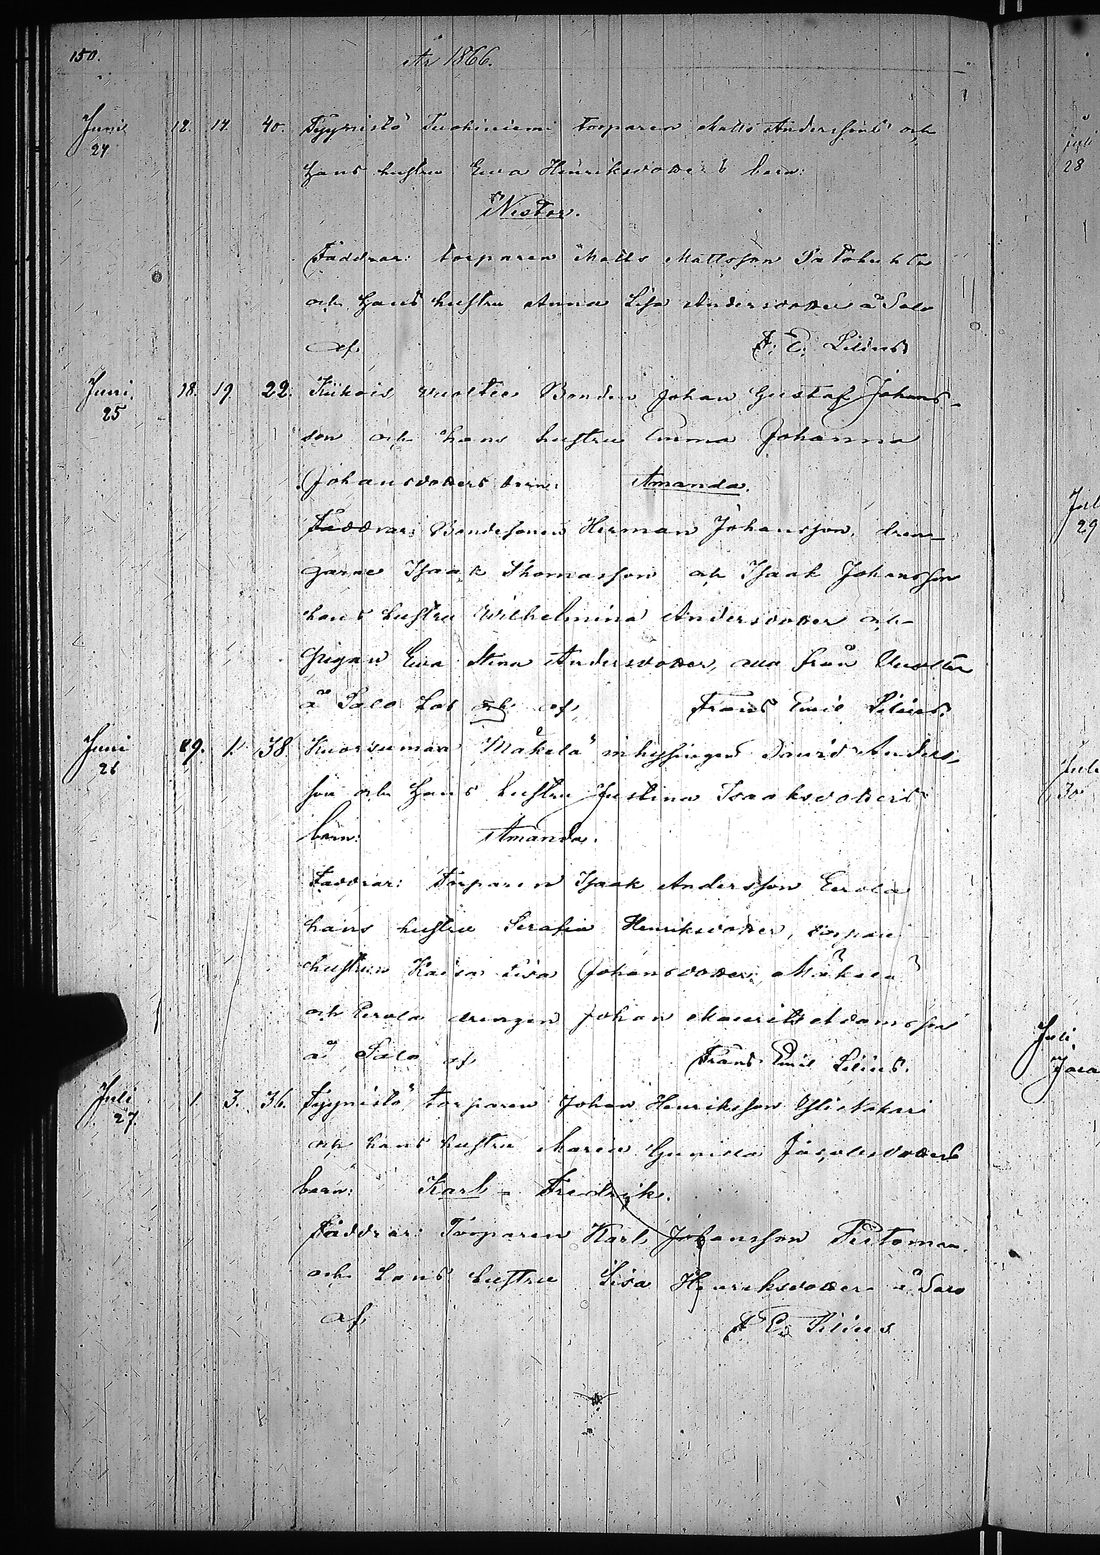 150.
År 1866.
Juni 18. 19. 40. Tyynistö torparen Matts Anderssons och
24
hans hustru Ewa Henriksdotters barn:
Nestor.
Faddrar: torparen Matts Mattsson
och hans hustru Anna Lisa Andersdotter å Salo
af F. E. Lilius
Juni 18. 19. 22. Kiikois Bonden Johan Gustaf Johans-
25
son och hans hustru Emma Johanna
Johansdotters barn: Amanda.
Faddrar: Bondesonen Herman Johansson, drän-
garne Isaak Thomasson och Isaak Johansson
hans hustru Wilhelmina Andersdotter och
pigan Ewa Stina Andersdotter, alla från
å Salo af Frans Emil Lilius.
Juni 29. 1. 38 Kuorsumaa Mäkelä inhysingen David Anders-
26
son och hans hustru Justina Isaaksdotters
barn: Amanda.
Faddrar: Torparen Isaak Andersson Eerola
hans hustru Serafia Henriksdotter,
hustrun Kaisa Lisa Johansdotter Mäkelä
och Eerola drengen Johan Maurits Adamsson
å Salo af Frans Emil Lilius.
Juli 1. 3. 36. Tyynistö torparen Johan Henriksson
27.
och hans hustru Maria Gunilla Jacobsdotters
barn: Karl Fredrik.
Faddrar: Torparen Karl Johansson
och hans hustru Lisa Henriksdotter å Salo
af F. E. Lilius
Juli
28
Juli
29
Juli
30
Juli